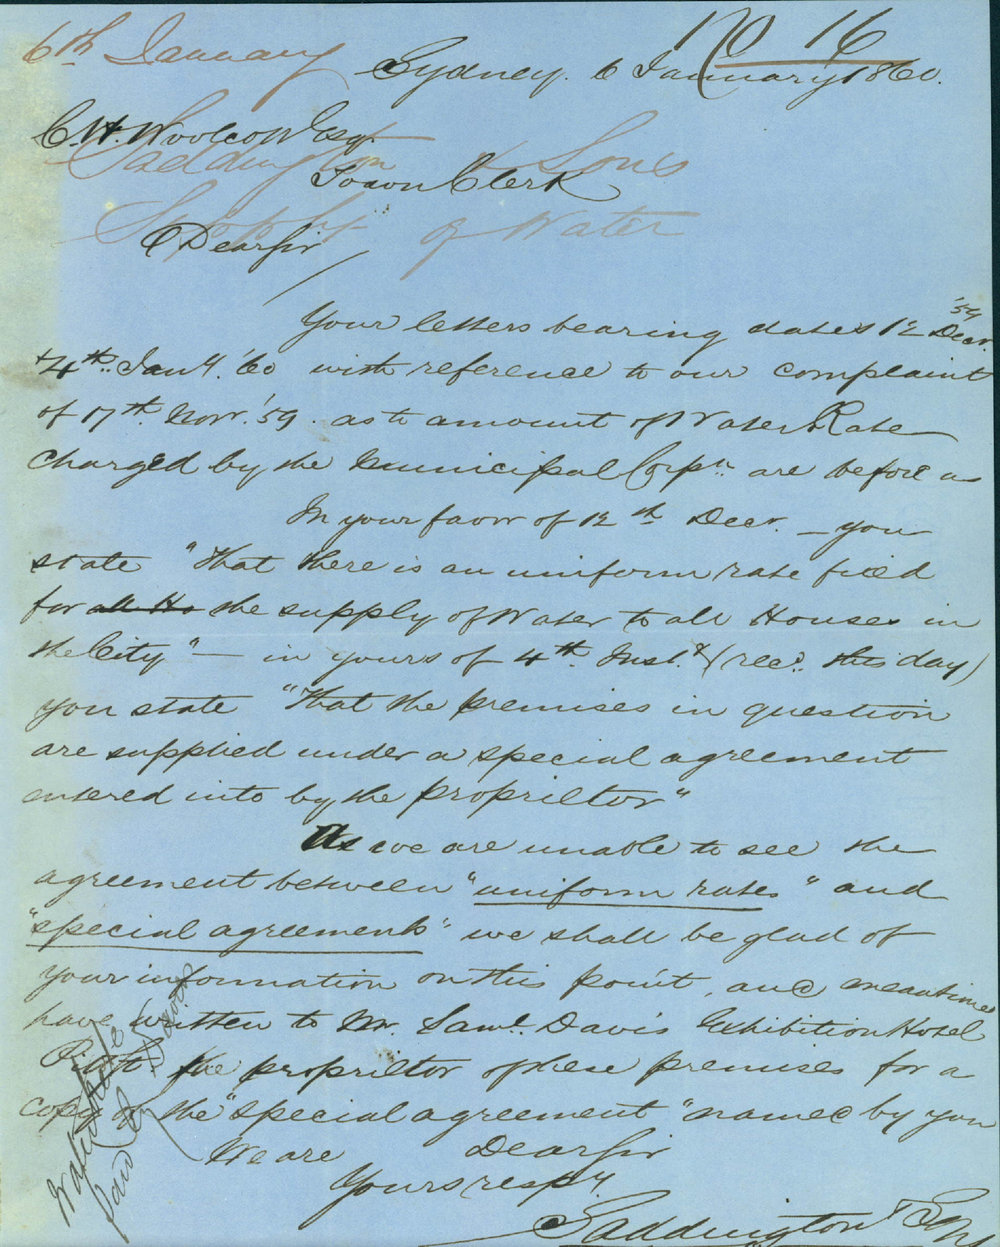 No 16
6th January
Sydney. 6 January 1860.
C. H. Woolcott Esqr.
Saddington & Sons
Town Clerk
Supply of Water
Dear Sir
Your letters bearing dates 12 Decr. '59
& 4th. Jany. '60 with reference to our complaint
of 17th. Nov. '59. as to amount of Water Rate
charged by the Municipal Corpn. are before us
In your favor of 12th Decr. — you
state "That there is an uniform rate fixed
for all Ho the supply of Water to all Houses in
the City" — in yours of 4th. Inst. (recd. this day)
you state "That the premises in question
are supplied under a special agreement
entered into by the proprietor"
As we are unable to see the
agreement between "uniform rates" and
"special agreements" we shall be glad of
your information on this point, and meantime
have written to Mr. Saml. Davis Exhibition Hotel
the proprietor of these premises for a
copy of the "special agreement" named by you
We are Dear Sir
Yours respy.
Saddington & Sons
Water Rate
paid